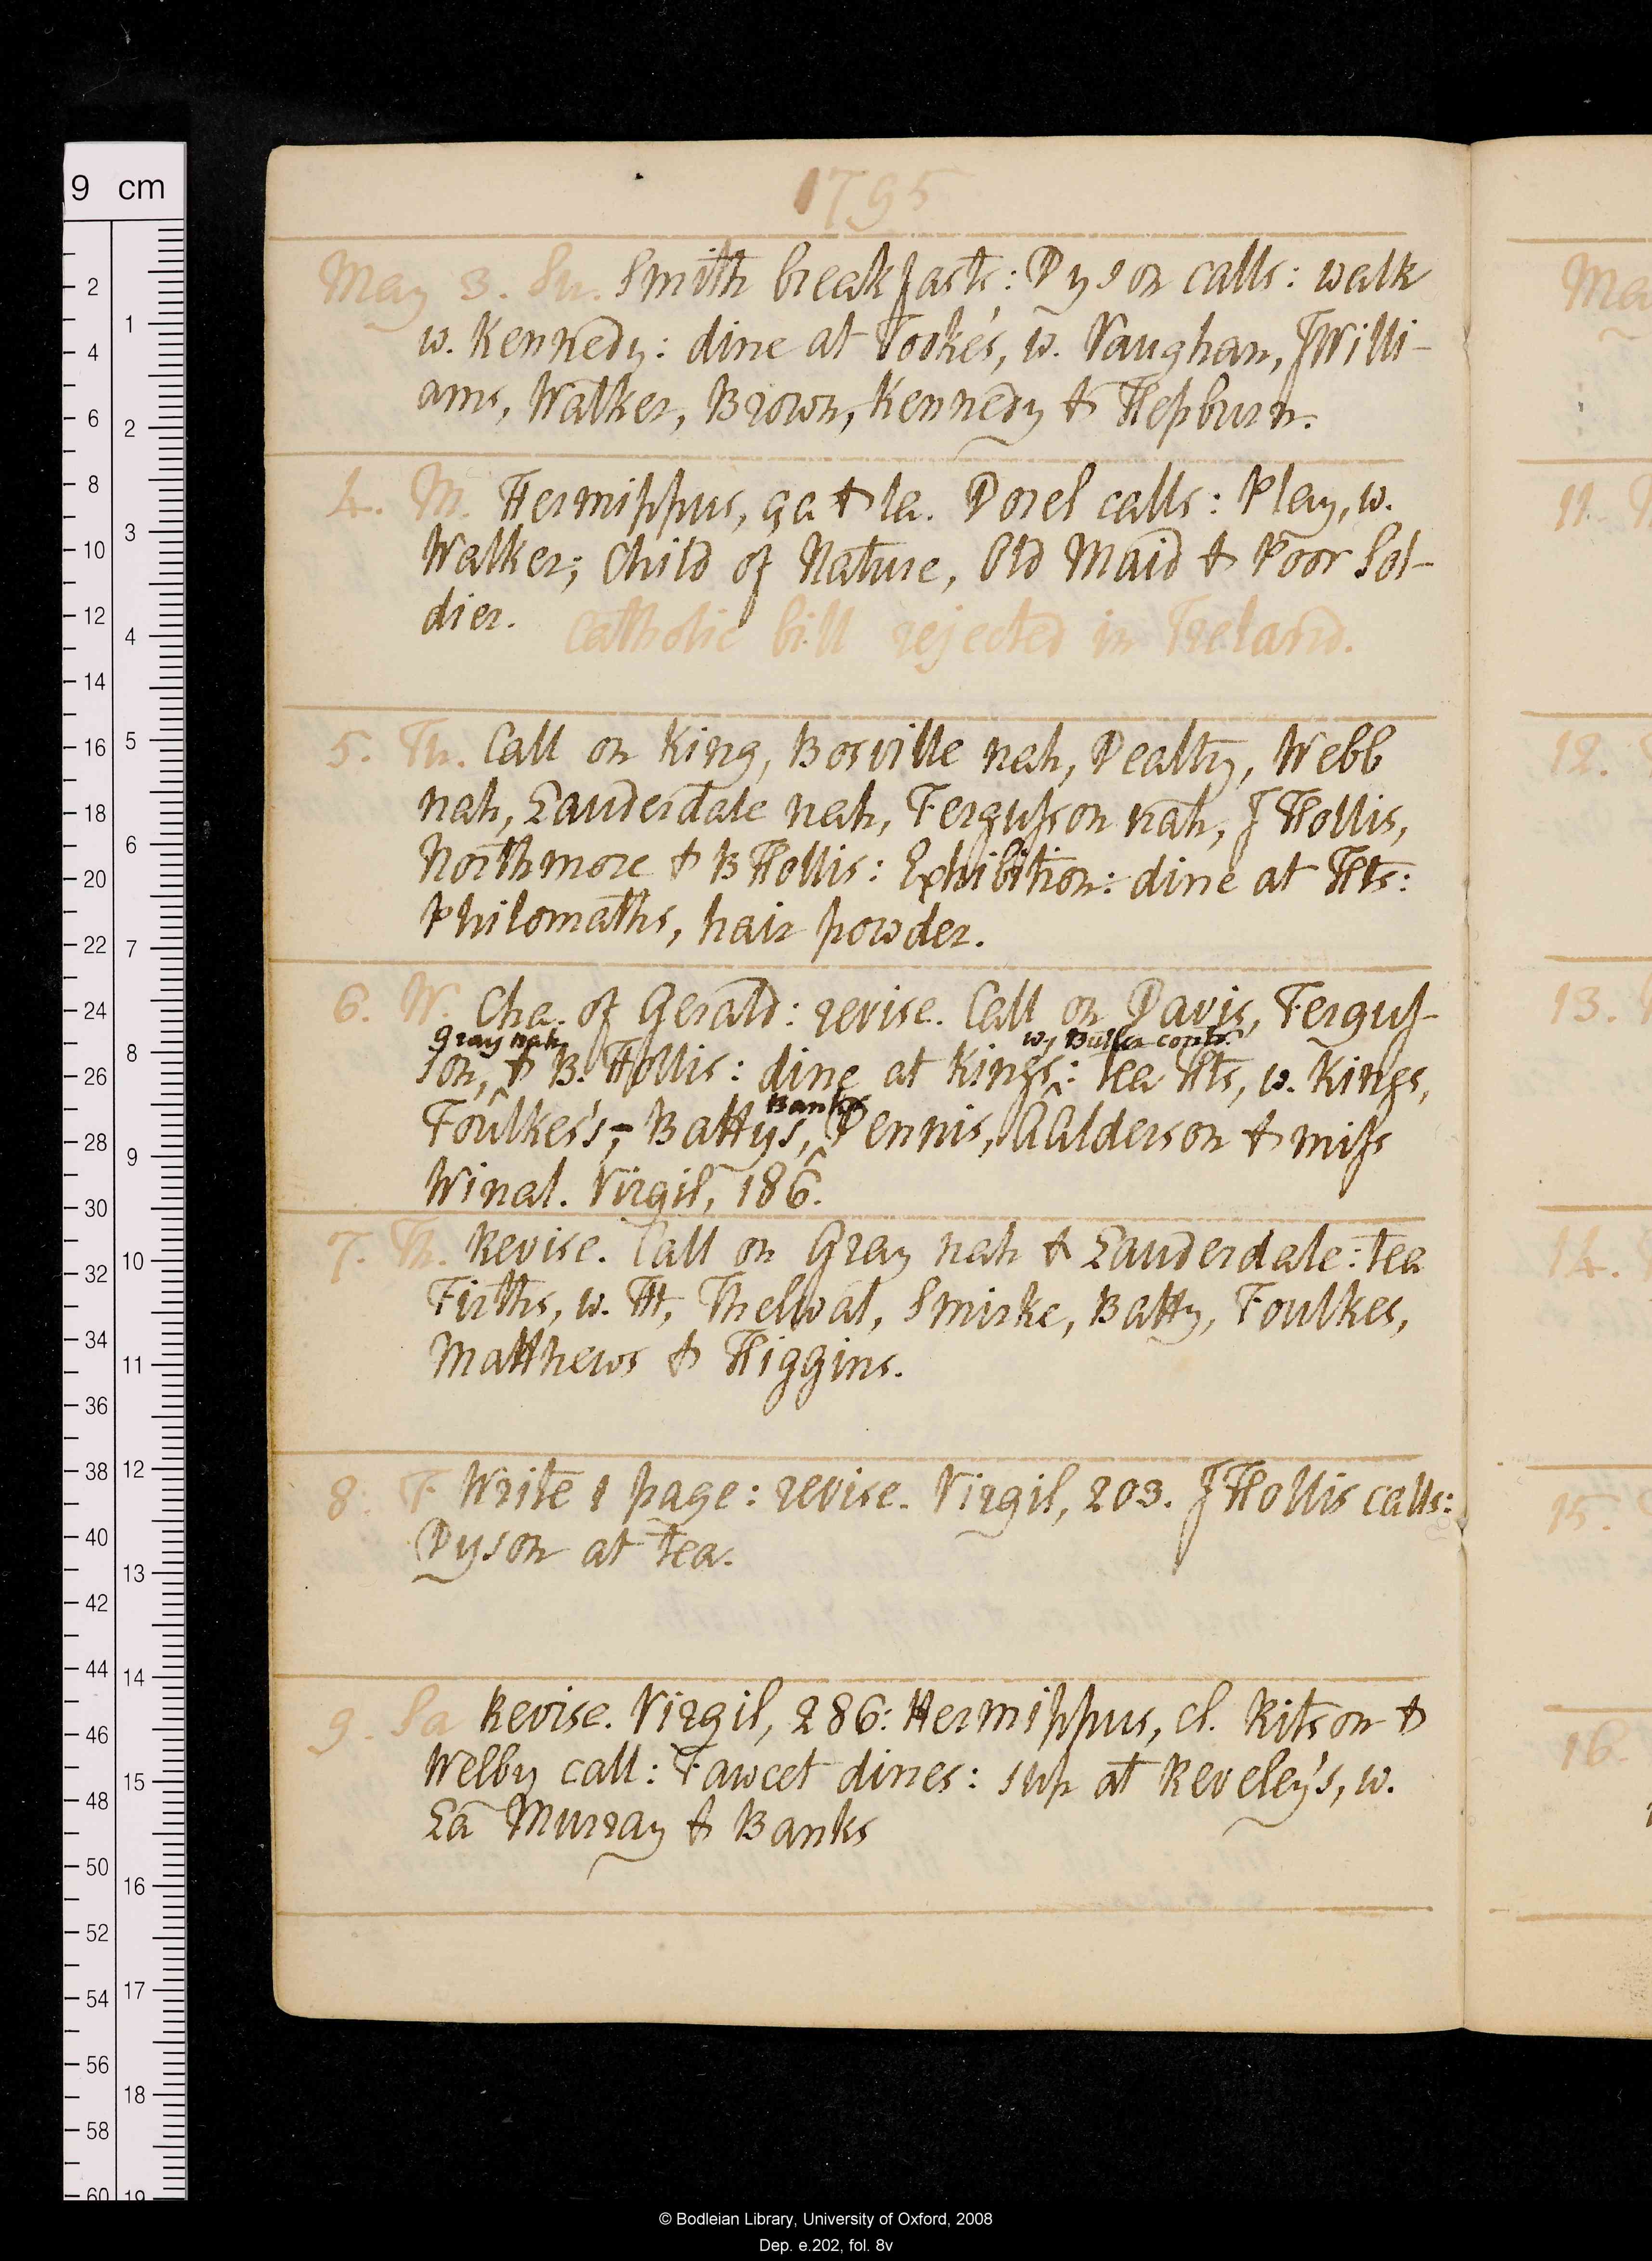 1795
May 3. Su. Smith breakfasts: Dyson calls: walk
w. Kennedy: dine at Tooke's, w. Vaughan, JWilli-
ams, Walker, Brown, Kennedy & Hepburn.
4. M. Hermippus, ça & la. Dorel calls: Play, w.
Walker; Child of Nature, Old Maid & Poor Sol-
dier. Catholic bill rejected in Ireland.
5. Tu. Call on King, Bosville nah, Dealtry, Webb
nah, Lauderdale nah, Fergusson nah, JHollis,
Northmore & BHollis: Exhibition: dine at Hts:
Philomaths, hair powder.
6. W. Cha. of Gerald: revise. Call on Davis, Fergus-
Gray nah, wy Buller contr.
son, ^ & B. Hollis: dine at Kings ^: tea Hts, w. Kings,
Banks
Foulkes's, Battys, ^ Dennis, AAlderson & miss
Winal. Virgil, 186.
7. Th. Revise. Call on Gray nah & Lauderdale: tea
Firths, w. Ht, Thelwal, Smirke, Batty, Foulkes,
Matthews & Higgins.
8. F. Write 1 page: revise. Virgil, 203. JHollis calls:
Dyson at tea.
9. Sa Revise. Virgil, 286: Hermippus, cl. Ritson &
Welby call: Fawcet dines: sup at Reveley's, w.
La Murray & Banks
9 cm
2 4 6 8 10 12 14 16 18 20 22 24 26 28 30 32 34 36 38 40 42 44 46 48 50 52 54 56 58 60
1 2 3 4 5 6 7 8 9 10 11 12 13 14 15 16 17 18 19
Ma
11.
12.
13.
14.
15.
16.
© Bodleian Library, University of Oxford, 2008
Dep. e.202, fol. 8v